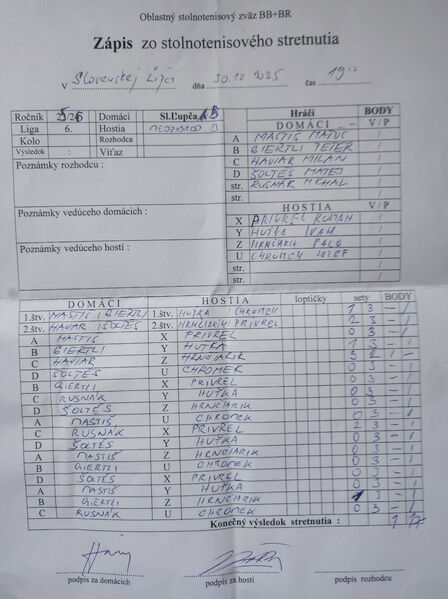 Oblastný stolnotenisový zväz BB+BR
Zápis zo stolnotenisového stretnutia
V Slovenskej Ľupči dňa 30.10.2025 čas 19⁰⁰
Ročník 25/26 Domáci Sl.Ľupča B
Liga 6. Hostia B
Kolo Rozhodca
Výsledok : Víťaz
Poznámky rozhodcu :
Poznámky vedúceho domácich :
Poznámky vedúceho hostí :
Hráči BODY
DOMÁCI V / P
A MASTIŠ MATÚŠ /
B GIERTLI PETER /
C HAVIAR MILAN /
D ŠOLTÉS MATEJ /
str. RUSNÁK MICHAL /
str. /
HOSTIA V / P
X PRIVREL ROMAN /
Y HUTKA IVAN /
Z HRNČIARIK PALO /
U CHROMEK JOZEF /
str. /
str. /
DOMÁCI HOSTIA loptičky sety BODY
1.štv. MASTIŠ GIERTLI 1.štv. HUTKA CHROMEK 1 3 - 1
2.štv. HAVIAR ŠOLTÉS 2.štv. HRNČIARIK PRIVREL 2 3 - 1
A MASTIŠ X PRIVREL 0 3 - 1
B GIERTLI Y HUTKA 1 3 - 1
C HAVIAR Z HRNČIARIK 3 2 1 -
D ŠOLTÉS U CHROMEK 0 3 - 1
B GIERTLI X PRIVREL 0 3 - 1
C RUSNÁK Y HUTKA 0 3 - 1
D ŠOLTÉS Z HRNČIARIK 0 3 - 1
A MASTIŠ U CHROMEK 0 3 - 1
C RUSNÁK X PRIVREL 2 3 - 1
D ŠOLTÉS Y HUTKA 0 3 - 1
A MASTIŠ Z HRNČIARIK 0 3 - 1
B GIERTLI U CHROMEK 0 3 - 1
D ŠOLTÉS X PRIVREL 0 3 - 1
A MASTIŠ Y HUTKA 0 3 - 1
B GIERTLI Z HRNČIARIK 1 3 - 1
C RUSNÁK U CHROMEK 0 3 - 1
Konečný výsledok stretnutia : 1 17
podpis za domácich podpis za hostí podpis rozhodcu